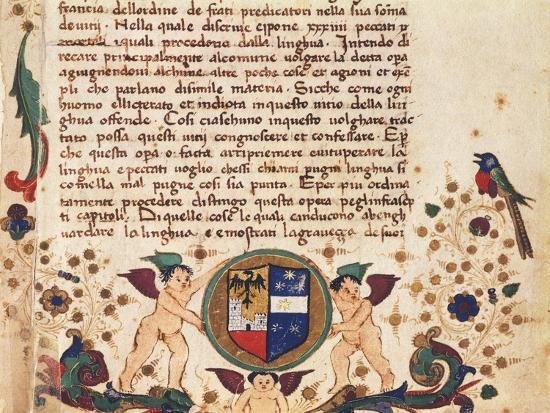 francia dellordine de frati predicatori nella sua soma
de vitij. Nella quale discrive espone xxxiiij peccati
mortali quali procedono dalla linghua. Intendo di
recare principalmente alcomune volgare la detta opa
agiugnendovi alchune altre poche cose et agioni et exe
pli che parlano disimile materia. Sicche come ogni
huomo allicterato et indiota inquesto vitio della lin
ghua offende. Cosi ciaschuno inquesto volghare trac
tato possa questi vitij congnoscere et confessare. Et p
che questa opa o facta artipriemere evituperare la
linghua e peccati voglio chessi chiami pugni linghua si
come lla mal pugne cosi sia punta. E per piu ordina
tamente procedere distinguo questa opera peglinfrascp
ti capitoli. Di quelle cose le quali canducono abengh
uardare la linghua e e mostrati lagravecça de suoi